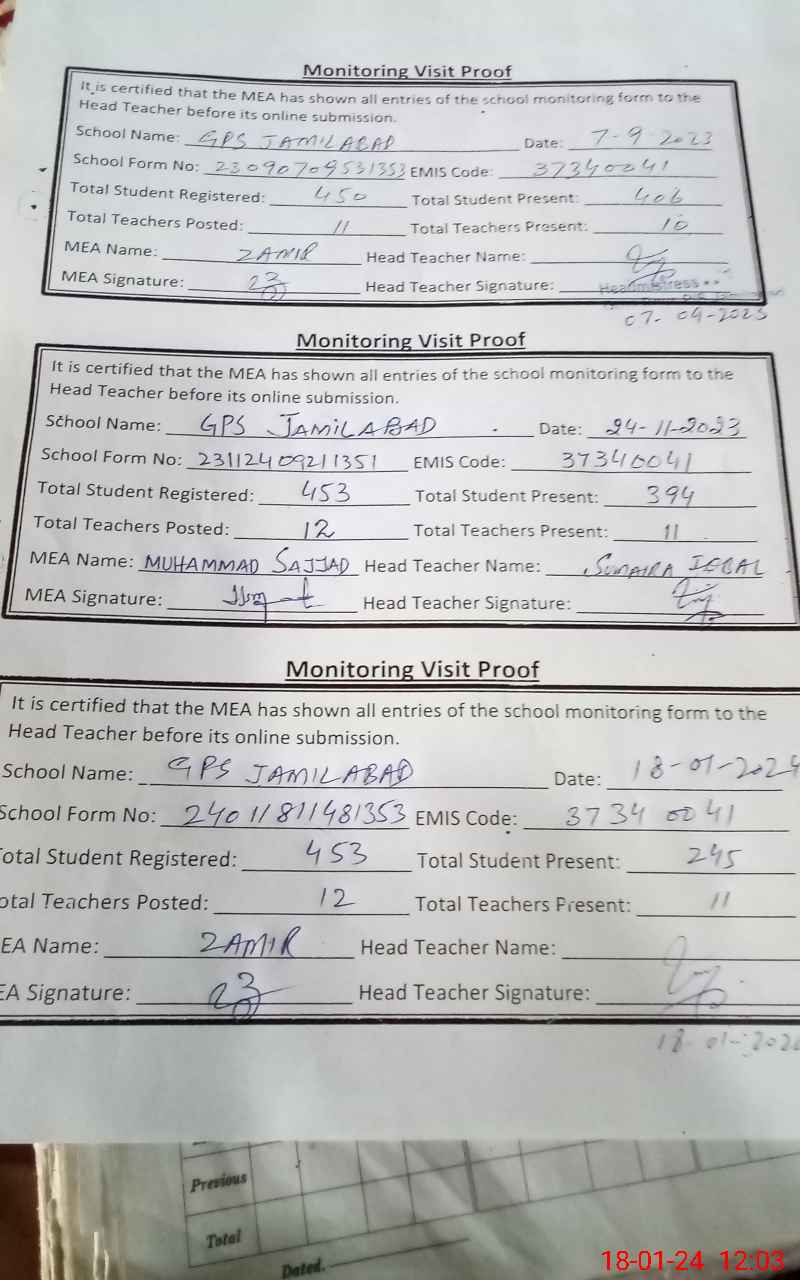 Monitoring Visit Proof
It is certified that the MEA has shown all entries of the school monitoring form to the
Head Teacher before its online submission.
School Name: GPS JAMILABAD Date: 7-9-2023
School Form No: 23090709531353 EMIS Code: 37340041
Total Student Registered: 450 Total Student Present: 406
Total Teachers Posted: 11 Total Teachers Present: 10
MEA Name: ZAMIR Head Teacher Name:
MEA Signature: Head Teacher Signature: Headmistress
07-09-2023
Monitoring Visit Proof
It is certified that the MEA has shown all entries of the school monitoring form to the
Head Teacher before its online submission.
School Name: GPS JAMILABAD Date: 24-11-2023
School Form No: 23112409211351 EMIS Code: 37340041
Total Student Registered: 453 Total Student Present: 394
Total Teachers Posted: 12 Total Teachers Present: 11
MEA Name: MUHAMMAD SAJJAD Head Teacher Name: SUMAIRA IQBAL
MEA Signature: Head Teacher Signature:
Monitoring Visit Proof
It is certified that the MEA has shown all entries of the school monitoring form to the
Head Teacher before its online submission.
School Name: GPS JAMILABAD Date: 18-01-2024
School Form No: 24011811481353 EMIS Code: 37340041
otal Student Registered: 453 Total Student Present: 245
otal Teachers Posted: 12 Total Teachers Present: 11
EA Name: ZAMIR Head Teacher Name:
EA Signature: Head Teacher Signature:
18-01-202
Previous
Total
Dated.
18-01-24 12:03